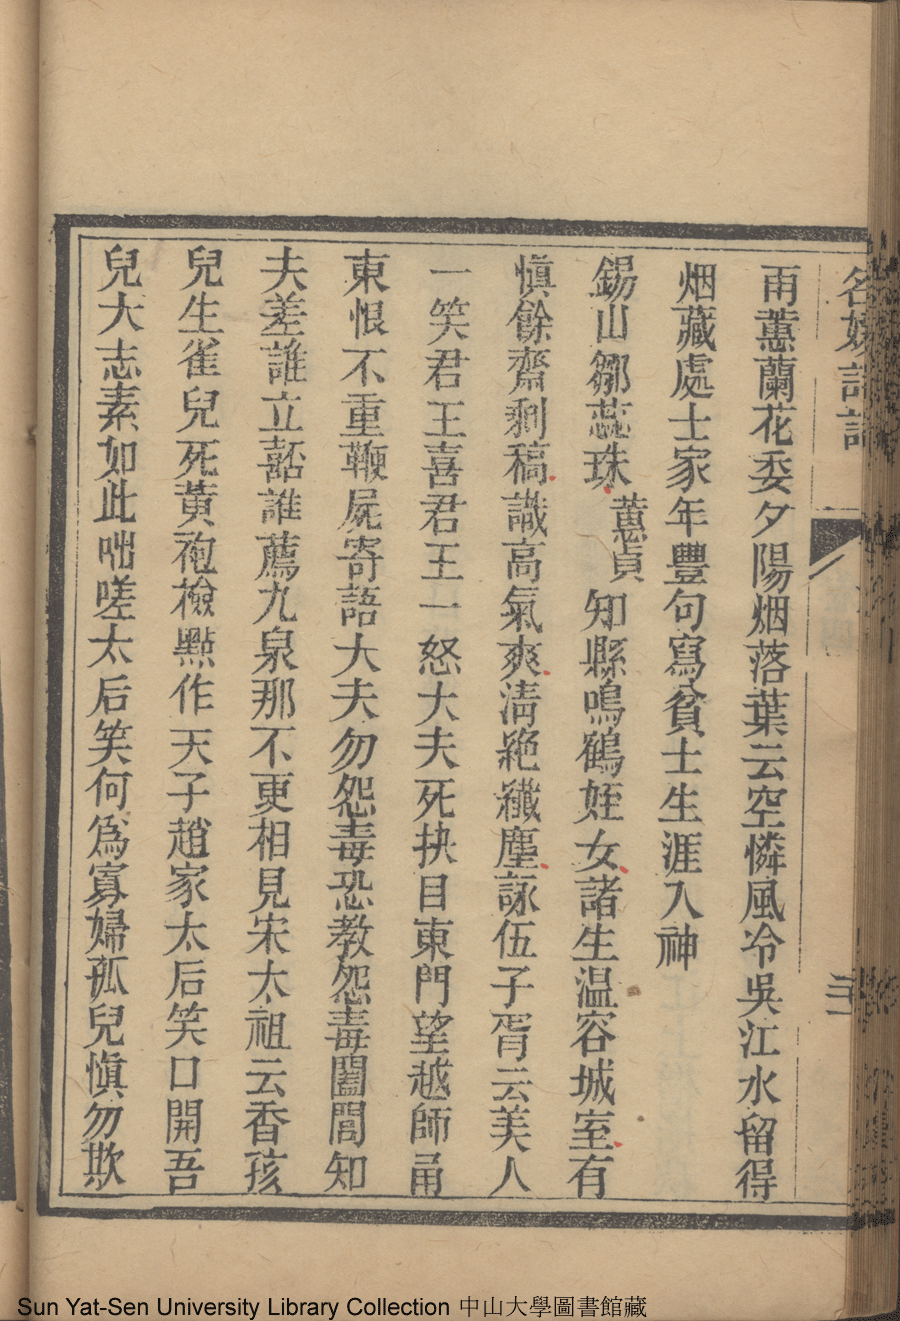 名媛詩話
雨蕙蘭花委夕陽烟落葉云空憐風冷吳江水留得
烟藏處士家年豐句寫貧士生涯入神
錫山鄒蕊珠蕙貞知縣鳴鶴姪女諸生温容城室有
愼餘齋剩稿識高氣爽淸絕纎塵詠伍子胥云美人
一笑君王喜君王一怒大夫死抉目東門望越師甬
東恨不重鞭屍寄語大夫勿怨毒恐教怨毒闔閭知
夫差誰立嚭誰薦九泉那不更相見宋太祖云香孩
兒生雀兒死黃袍檢點作天子趙家太后笑口開吾
兒大志素如此咄嗟太后笑何爲寡婦孤兒愼勿欺
Sun Yat-Sen University Library Collection 中山大學圖書館藏